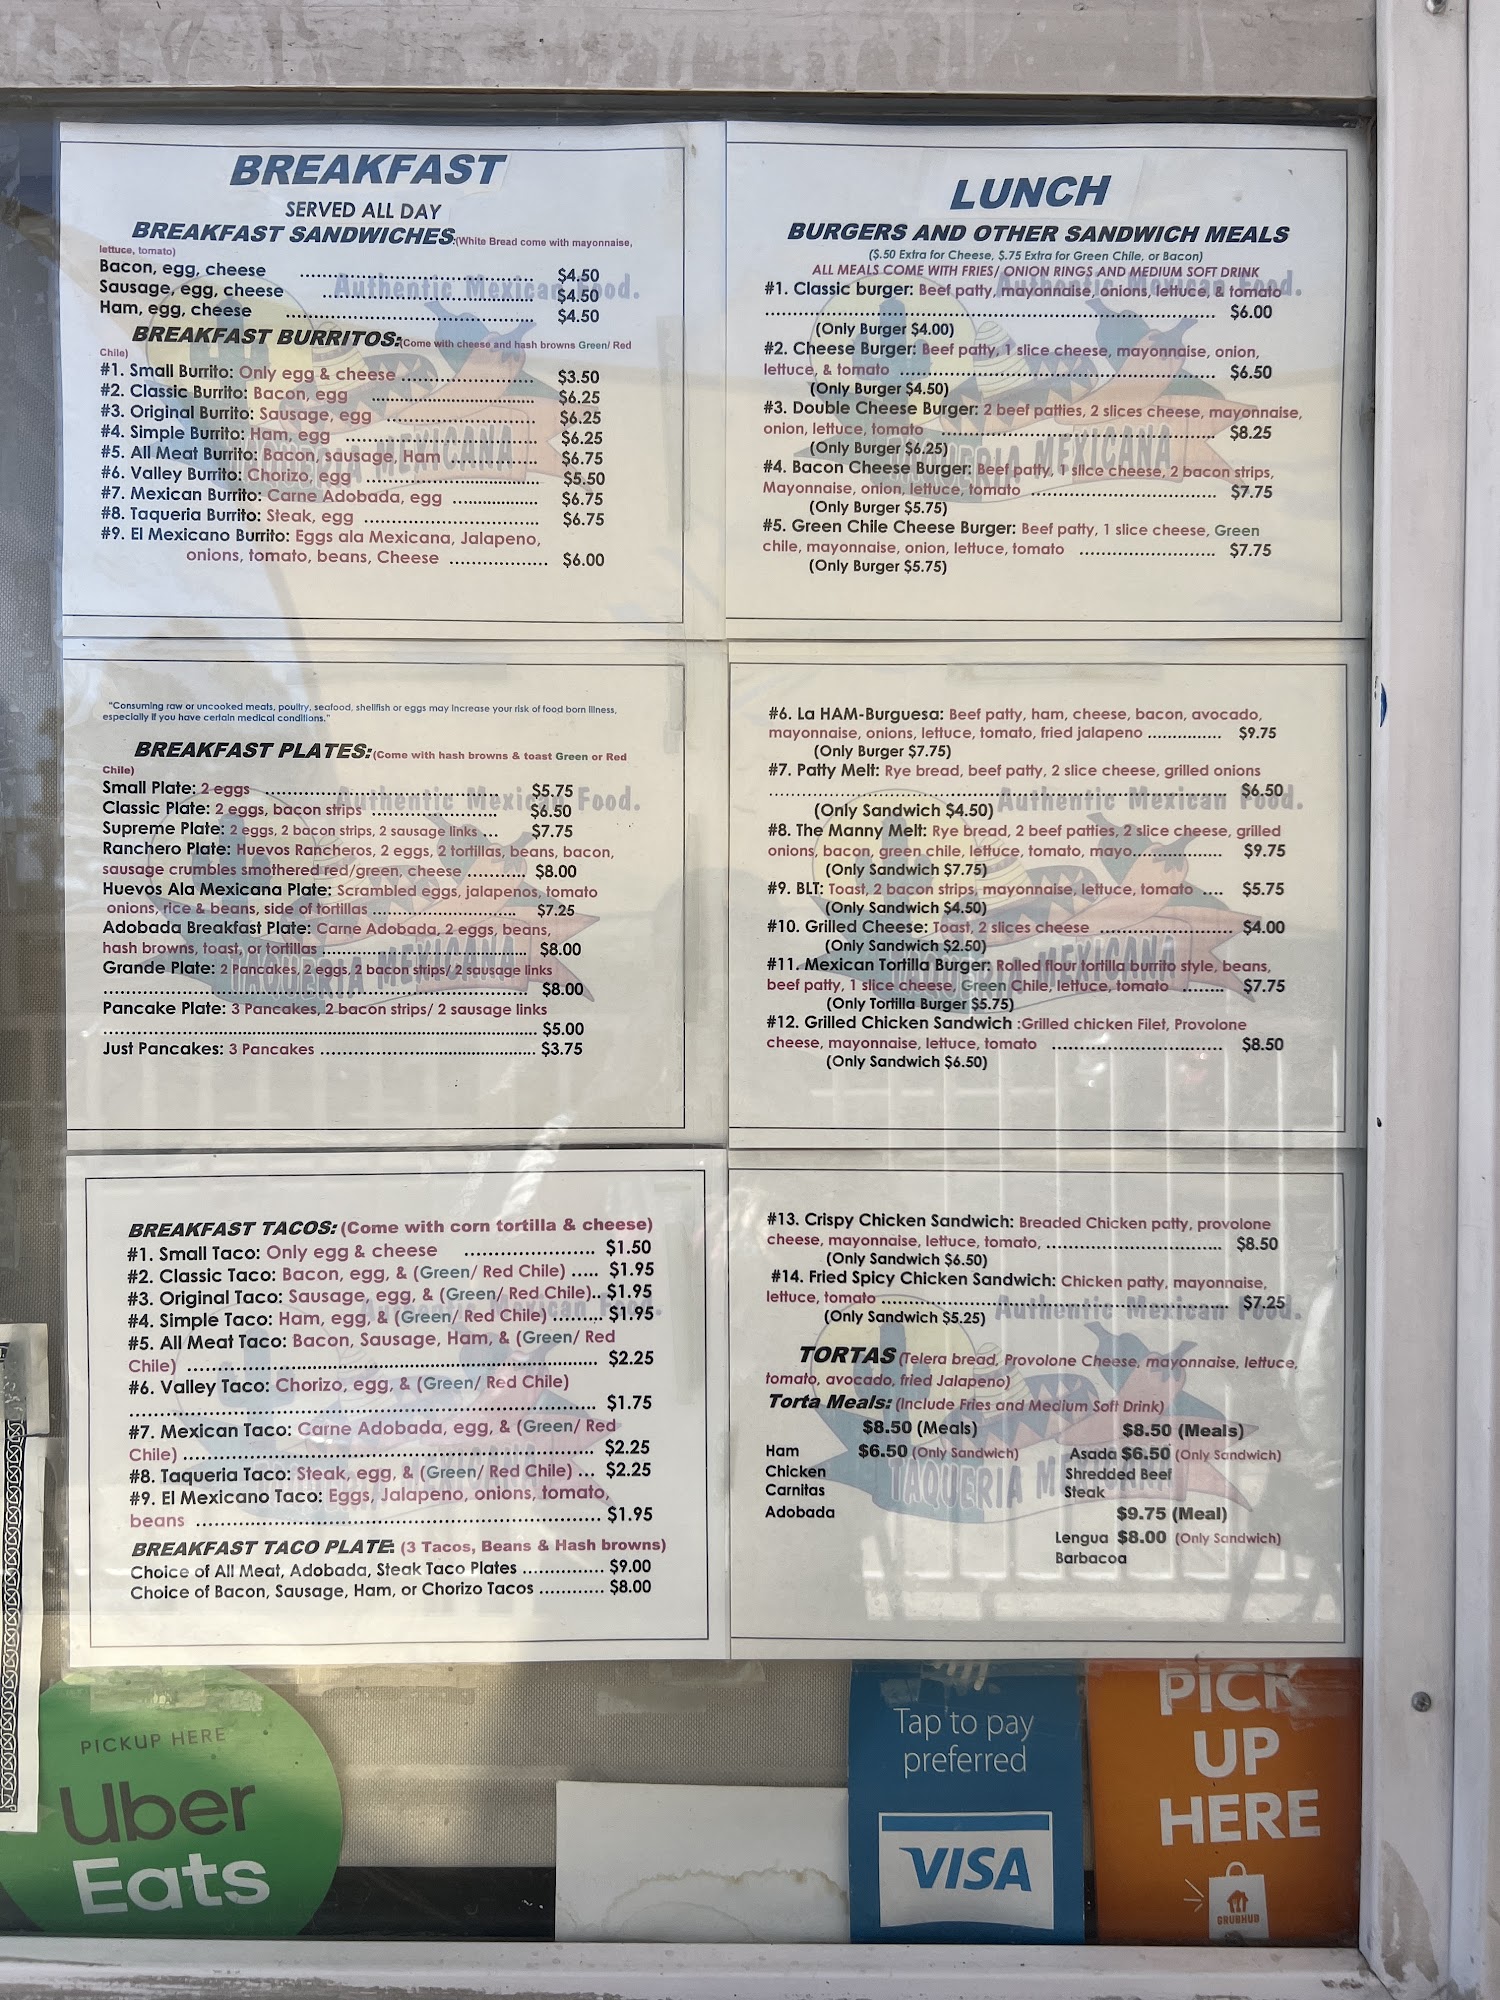 BREAKFAST
SERVED ALL DAY
BREAKFAST SANDWICHES:(White Bread come with mayonnaise,
lettuce, tomato)
Bacon, egg, cheese .......... $4.50
Sausage, egg, cheese .......... $4.50
Ham, egg, cheese .......... $4.50
BREAKFAST BURRITOS:(Come with cheese and hash browns Green/ Red
Chile)
#1. Small Burrito: Only egg & cheese .......... $3.50
#2. Classic Burrito: Bacon, egg .......... $6.25
#3. Original Burrito: Sausage, egg .......... $6.25
#4. Simple Burrito: Ham, egg .......... $6.25
#5. All Meat Burrito: Bacon, sausage, Ham .......... $6.75
#6. Valley Burrito: Chorizo, egg .......... $5.50
#7. Mexican Burrito: Carne Adobada, egg .......... $6.75
#8. Taqueria Burrito: Steak, egg .......... $6.75
#9. El Mexicano Burrito: Eggs ala Mexicana, Jalapeno,
onions, tomato, beans, Cheese .......... $6.00
Authentic Mexican Food.
TAQUERIA MEXICANA
"Consuming raw or uncooked meats, poultry, seafood, shellfish or eggs may increase your risk of food born illness,
especially if you have certain medical conditions."
BREAKFAST PLATES:(Come with hash browns & toast Green or Red
Chile)
Small Plate: 2 eggs .......... $5.75
Classic Plate: 2 eggs, bacon strips .......... $6.50
Supreme Plate: 2 eggs, 2 bacon strips, 2 sausage links ... $7.75
Ranchero Plate: Huevos Rancheros, 2 eggs, 2 tortillas, beans, bacon,
sausage crumbles smothered red/green, cheese .......... $8.00
Huevos Ala Mexicana Plate: Scrambled eggs, jalapenos, tomato
onions, rice & beans, side of tortillas .......... $7.25
Adobada Breakfast Plate: Carne Adobada, 2 eggs, beans,
hash browns, toast, or tortillas .......... $8.00
Grande Plate: 2 Pancakes, 2 eggs, 2 bacon strips/ 2 sausage links
.......... $8.00
Pancake Plate: 3 Pancakes, 2 bacon strips/ 2 sausage links
.......... $5.00
Just Pancakes: 3 Pancakes .......... $3.75
Authentic Mexican Food.
TAQUERIA MEXICANA
BREAKFAST TACOS: (Come with corn tortilla & cheese)
#1. Small Taco: Only egg & cheese .......... $1.50
#2. Classic Taco: Bacon, egg, & (Green/ Red Chile) ..... $1.95
#3. Original Taco: Sausage, egg, & (Green/ Red Chile).. $1.95
#4. Simple Taco: Ham, egg, & (Green/ Red Chile) ......... $1.95
#5. All Meat Taco: Bacon, Sausage, Ham, & (Green/ Red
Chile) .......... $2.25
#6. Valley Taco: Chorizo, egg, & (Green/ Red Chile)
.......... $1.75
#7. Mexican Taco: Carne Adobada, egg, & (Green/ Red
Chile) .......... $2.25
#8. Taqueria Taco: Steak, egg, & (Green/ Red Chile) ... $2.25
#9. El Mexicano Taco: Eggs, Jalapeno, onions, tomato,
beans .......... $1.95
BREAKFAST TACO PLATE: (3 Tacos, Beans & Hash browns)
Choice of All Meat, Adobada, Steak Taco Plates .......... $9.00
Choice of Bacon, Sausage, Ham, or Chorizo Tacos .......... $8.00
LUNCH
BURGERS AND OTHER SANDWICH MEALS
($.50 Extra for Cheese, $.75 Extra for Green Chile, or Bacon)
ALL MEALS COME WITH FRIES/ ONION RINGS AND MEDIUM SOFT DRINK
#1. Classic burger: Beef patty, mayonnaise, onions, lettuce, & tomato
.......... $6.00
(Only Burger $4.00)
#2. Cheese Burger: Beef patty, 1 slice cheese, mayonnaise, onion,
lettuce, & tomato .......... $6.50
(Only Burger $4.50)
#3. Double Cheese Burger: 2 beef patties, 2 slices cheese, mayonnaise,
onion, lettuce, tomato .......... $8.25
(Only Burger $6.25)
#4. Bacon Cheese Burger: Beef patty, 1 slice cheese, 2 bacon strips,
Mayonnaise, onion, lettuce, tomato .......... $7.75
(Only Burger $5.75)
#5. Green Chile Cheese Burger: Beef patty, 1 slice cheese, Green
chile, mayonnaise, onion, lettuce, tomato .......... $7.75
(Only Burger $5.75)
TAQUERIA MEXICANA
#6. La HAM-Burguesa: Beef patty, ham, cheese, bacon, avocado,
mayonnaise, onions, lettuce, tomato, fried jalapeno .......... $9.75
(Only Burger $7.75)
#7. Patty Melt: Rye bread, beef patty, 2 slice cheese, grilled onions
.......... $6.50
(Only Sandwich $4.50)
#8. The Manny Melt: Rye bread, 2 beef patties, 2 slice cheese, grilled
onions, bacon, green chile, lettuce, tomato, mayo.......... $9.75
(Only Sandwich $7.75)
#9. BLT: Toast, 2 bacon strips, mayonnaise, lettuce, tomato .... $5.75
(Only Sandwich $4.50)
#10. Grilled Cheese: Toast, 2 slices cheese .......... $4.00
(Only Sandwich $2.50)
#11. Mexican Tortilla Burger: Rolled flour tortilla burrito style, beans,
beef patty, 1 slice cheese, Green Chile, lettuce, tomato ........ $7.75
(Only Tortilla Burger $5.75)
#12. Grilled Chicken Sandwich :Grilled chicken Filet, Provolone
cheese, mayonnaise, lettuce, tomato .......... $8.50
(Only Sandwich $6.50)
Authentic Mexican Food.
TAQUERIA MEXICANA
#13. Crispy Chicken Sandwich: Breaded Chicken patty, provolone
cheese, mayonnaise, lettuce, tomato, .......... $8.50
(Only Sandwich $6.50)
#14. Fried Spicy Chicken Sandwich: Chicken patty, mayonnaise,
lettuce, tomato .......... $7.25
(Only Sandwich $5.25)
Authentic Mexican Food.
TORTAS (Telera bread, Provolone Cheese, mayonnaise, lettuce,
tomato, avocado, fried Jalapeno)
Torta Meals: (Include Fries and Medium Soft Drink)
$8.50 (Meals) $8.50 (Meals)
Ham $6.50 (Only Sandwich) Asada $6.50 (Only Sandwich)
Chicken Shredded Beef
Carnitas Steak
Adobada $9.75 (Meal)
Lengua $8.00 (Only Sandwich)
Barbacoa
TAQUERIA MEXICANA
PICKUP HERE
Uber
Eats
Tap to pay
preferred
VISA
PICK
UP
HERE
GRUBHUB